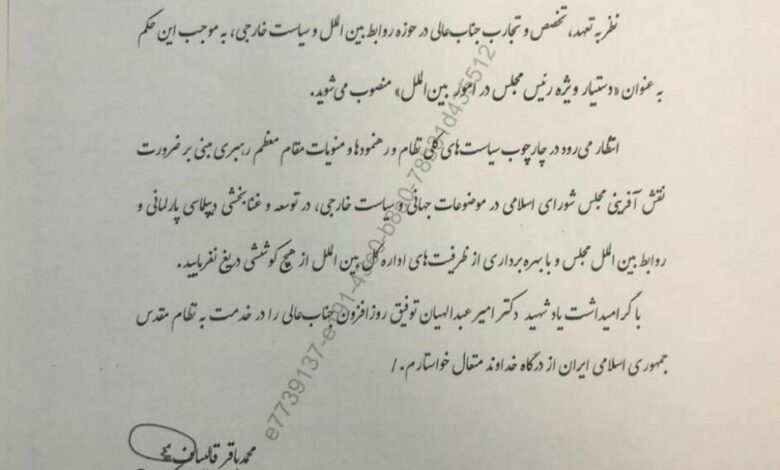 نظر به تعهد، تخصص و تجارب جناب‌عالی در حوزه روابط بین‌الملل و سیاست خارجی، به موجب این حکم
به عنوان «دستیار ویژه رئیس مجلس در امور بین‌الملل» منصوب می‌شوید.
انتظار می‌رود در چارچوب سیاست‌های کلی نظام و رهنمودها و منویات مقام معظم رهبری مبنی بر ضرورت
نقش آفرینی مجلس شورای اسلامی در موضوعات جهانی و سیاست خارجی، در توسعه و غنابخشی دیپلماسی پارلمانی و
روابط بین الملل مجلس و با بهره برداری از ظرفیت‌های اداره کل بین الملل از هیچ کوششی دریغ نفرمایید.
با گرامیداشت یاد شهید دکتر امیرعبدالهیان توفیق روزافزون جناب‌عالی را در خدمت به نظام مقدس
جمهوری اسلامی ایران از درگاه خداوند متعال خواستارم./
محمدباقر قالیباف